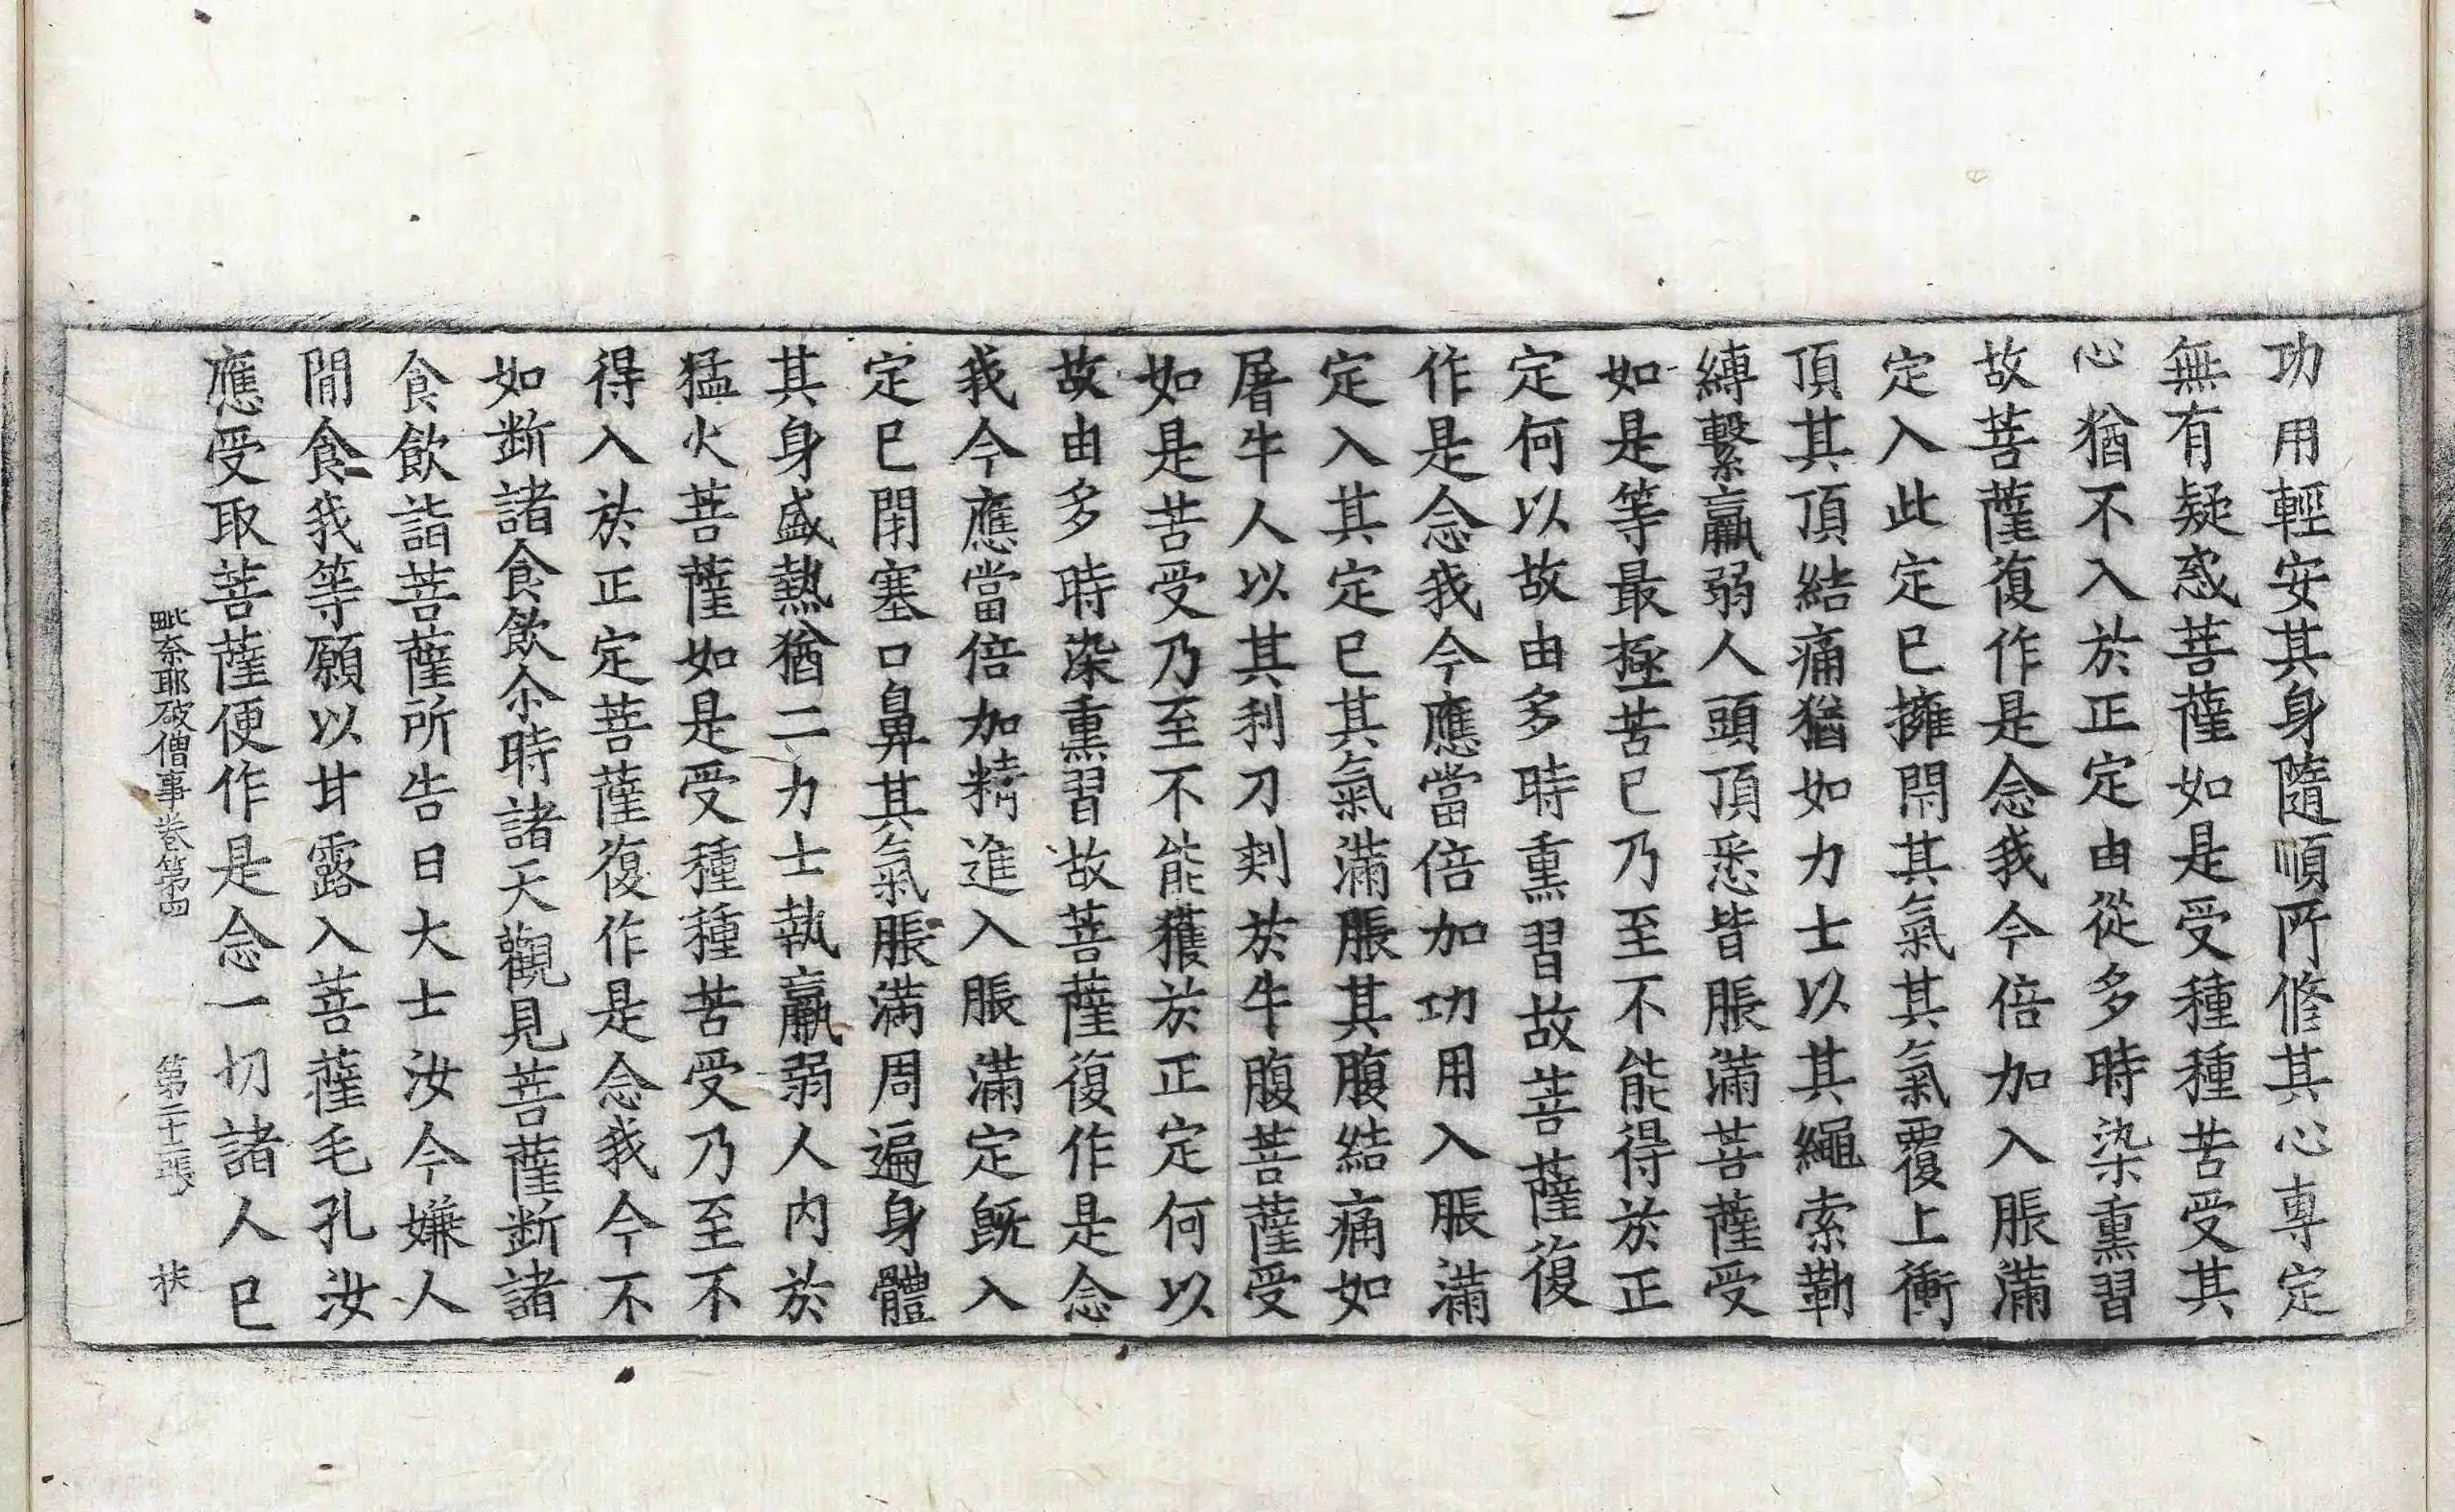 功用輕安其身隨順所修其心專定
無有疑惑菩薩如是受種種苦受其
心猶不入於正定由從多時染熏習
故菩薩復作是念我今倍加入脹滿
定入此定已擁閇其氣其氣覆上衝
頂其頂結痛猶如力士以其繩索勒
縛繫羸弱人頭頂悉皆脹滿菩薩受
如是等最極苦已乃至不能得於正
定何以故由多時熏習故菩薩復
作是念我今應當倍加功用入脹滿
定入其定已其氣滿脹其腹結痛如
屠牛人以其利刀剗於牛腹菩薩受
如是苦受乃至不能獲於正定何以
故由多時染熏習故菩薩復作是念
我今應當倍加精進入脹滿定既入
定已閇塞口鼻其氣脹滿周遍身體
其身盛熱猶二力士執羸弱人內於
猛火菩薩如是受種種苦受乃至不
得入於正定菩薩復作是念我今不
如断諸食飲尒時諸天觀見菩薩断諸
食飲詣菩薩所告曰大士汝今嫌人
閒食我等願以甘露入菩薩毛孔汝
應受取菩薩便作是念一切諸人已
毗奈耶破僧事卷第四 第二十二張 扶